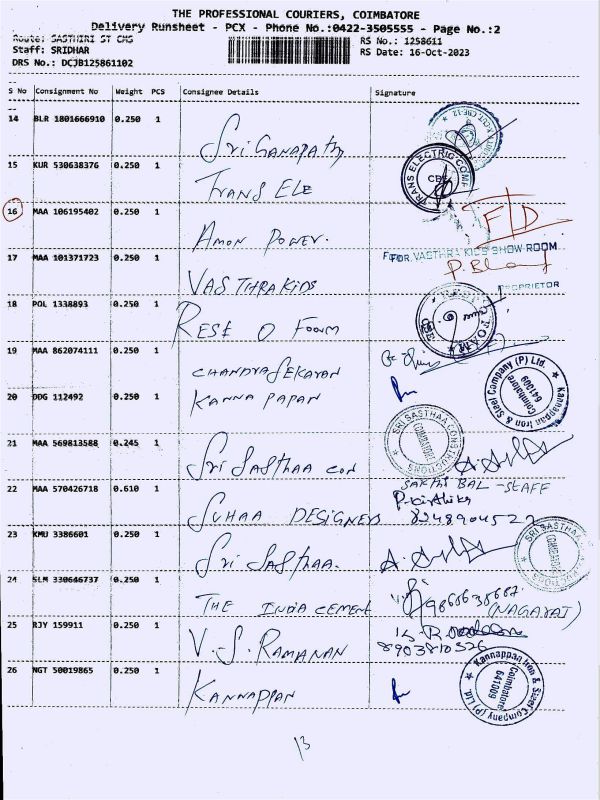 THE PROFESSIONAL COURIERS, COIMBATORE
Delivery Runsheet - PCX - Phone No.:0422-3505555 - Page No.:2
Route: SASTHIRI ST CMS
RS No.: 1258611
Staff: SRIDHAR
RS Date: 16-Oct-2023
DRS No.: DCJB125861102
S No Consignment No Weight PCS Consignee Details Signature
14 BLR 1801666910 0.250 1 Sri Ganapathy
15 KUR 530638376 0.250 1 Trans Ele
TRANS ELECTRIC COMP
CBE
16 MAA 106195402 0.250 1 Amon Power.
17 MAA 101371723 0.250 1 VASTHRA KIDS
FOR VASTHRA KIDS SHOW ROOM
PROPRIETOR
18 POL 1338893 0.250 1 Rose O Foam
FOAM
19 MAA 862074111 0.250 1 CHANDRASEKARAN
20 DDG 112492 0.250 1 KANNAPAPAN
Kannappan Iron & Steel Company (P) Ltd.
Coimbatore
641009
21 MAA 569813588 0.245 1 Sri Sasthaa con
SRI SASTHAA CONSTRUCTIONS
COIMBATORE
SAKTHI BAL - STAFF
22 MAA 570426718 0.610 1 SUHAA DESIGNERS
P. Kirthika
8248904527
23 KMU 3386601 0.250 1 Sri Sasthaa.
SRI SASTHAA
24 SLM 330646737 0.250 1 THE INDIA CEMENT
(NAGARAJ)
25 RJY 159911 0.250 1 V.S. RAMANAN
8903810526
26 NGT 50019865 0.250 1 KANNAPPAN
Kannappan Iron & Steel Company (P) Ltd.
Coimbatore
641009
13